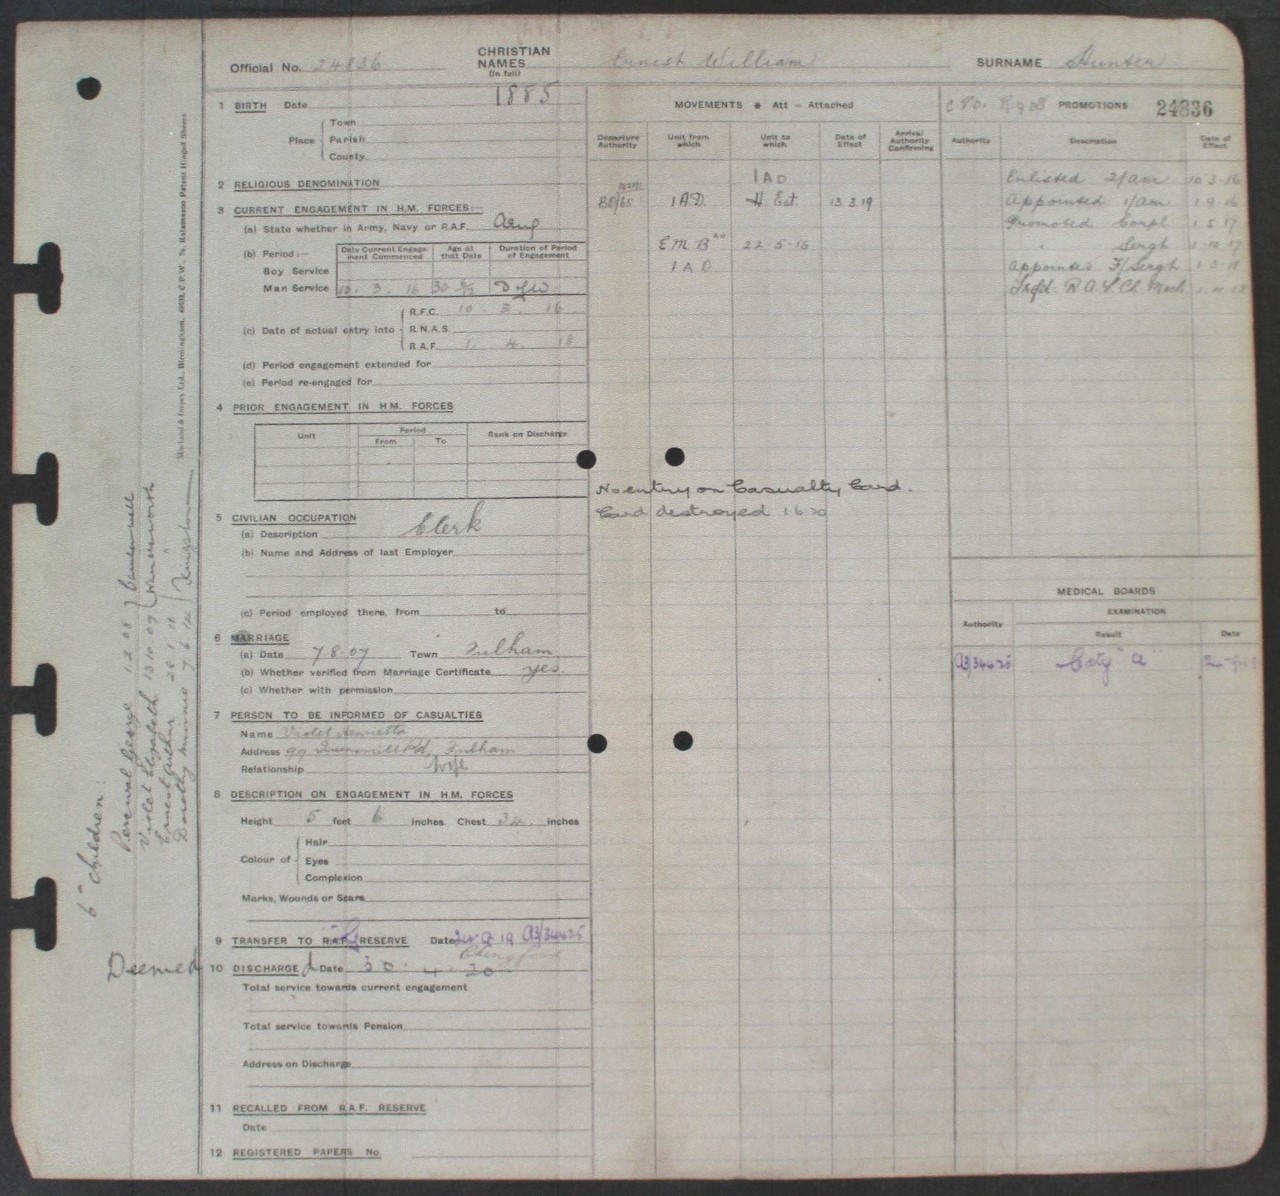 Official No. 24836 CHRISTIAN NAMES (in full) Ernest William SURNAME Hunter
1 BIRTH Date 1885
Place Town
Parish
County
2 RELIGIOUS DENOMINATION
3 CURRENT ENGAGEMENT IN H.M. FORCES:—
(a) State whether in Army, Navy or R.A.F. Army
(b) Period:— Date Current Engagement Commenced Age at that Date Duration of Period of Engagement
Boy Service
Man Service 10. 3. 16 30 DofW
(c) Date of actual entry into R.F.C. 10. 3. 16
R.N.A.S.
R.A.F. 1. 4. 18
(d) Period engagement extended for
(e) Period re-engaged for
4 PRIOR ENGAGEMENT IN H.M. FORCES
Unit Period Rank on Discharge
From To
5 CIVILIAN OCCUPATION
(a) Description Clerk
(b) Name and Address of last Employer
(c) Period employed there, from to
6 MARRIAGE
(a) Date 7-8-07 Town Fulham
(b) Whether verified from Marriage Certificate yes
(c) Whether with permission
7 PERSON TO BE INFORMED OF CASUALTIES
Name Violet Henrietta
Address 99 Rd, Fulham
Relationship Wife
8 DESCRIPTION ON ENGAGEMENT IN H.M. FORCES
Height 5 feet 6 inches. Chest 34 inches
Colour of Hair
Eyes
Complexion
Marks, Wounds or Scars
9 TRANSFER TO R.A.F. RESERVE Date 24 19 A3/34425
Deemed 10 DISCHARGEd Date 30. 4. 20
Total service towards current engagement
Total service towards Pension
Address on Discharge
11 RECALLED FROM R.A.F. RESERVE
Date
12 REGISTERED PAPERS No.
MOVEMENTS * Att = Attached
Departure Authority Unit from which Unit to which Date of Effect Arrival Authority Confirming
1 A D
BO/65 1 A.D. H. Est 13.3.19
E M B 22-5-16
1 A D
No entry on Casualty Card.
Card destroyed 1.6.20
PROMOTIONS 24836
Authority Description Date of Effect
Enlisted 2/am 10.3.16
Appointed 1/am 1.9.16
Promoted Corpl 1.5.17
" Sergt 1.10.17
Appointed F/Sergt
Trfd. R.A.F. Ch. Mech.
MEDICAL BOARDS
EXAMINATION
Authority Result Date
A3/34425 Caty "A"
6 Children:
Percival George 1.2.08 Camberwell
Violet Elizabeth Wandsworth
Ernest Arthur "
Dorothy Minnie